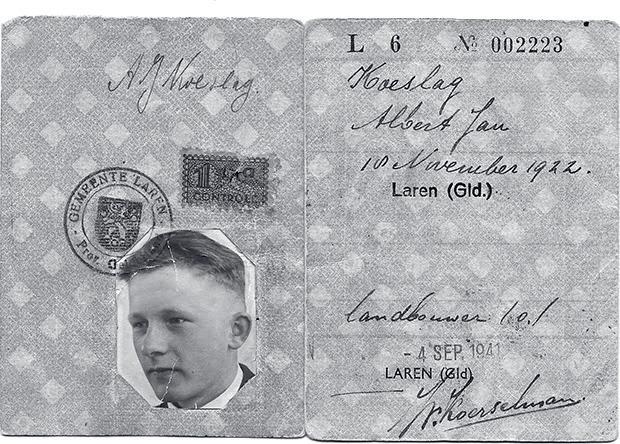 A J Koeslag.
GEMEENTE LAREN
Prov.
1
CONTROLE
L 6 № 002223
Koeslag
Albert Jan
18 November 1922.
Laren (Gld.)
landbouwer
- 4 SEP. 1941
LAREN (Gld)
Koerselman